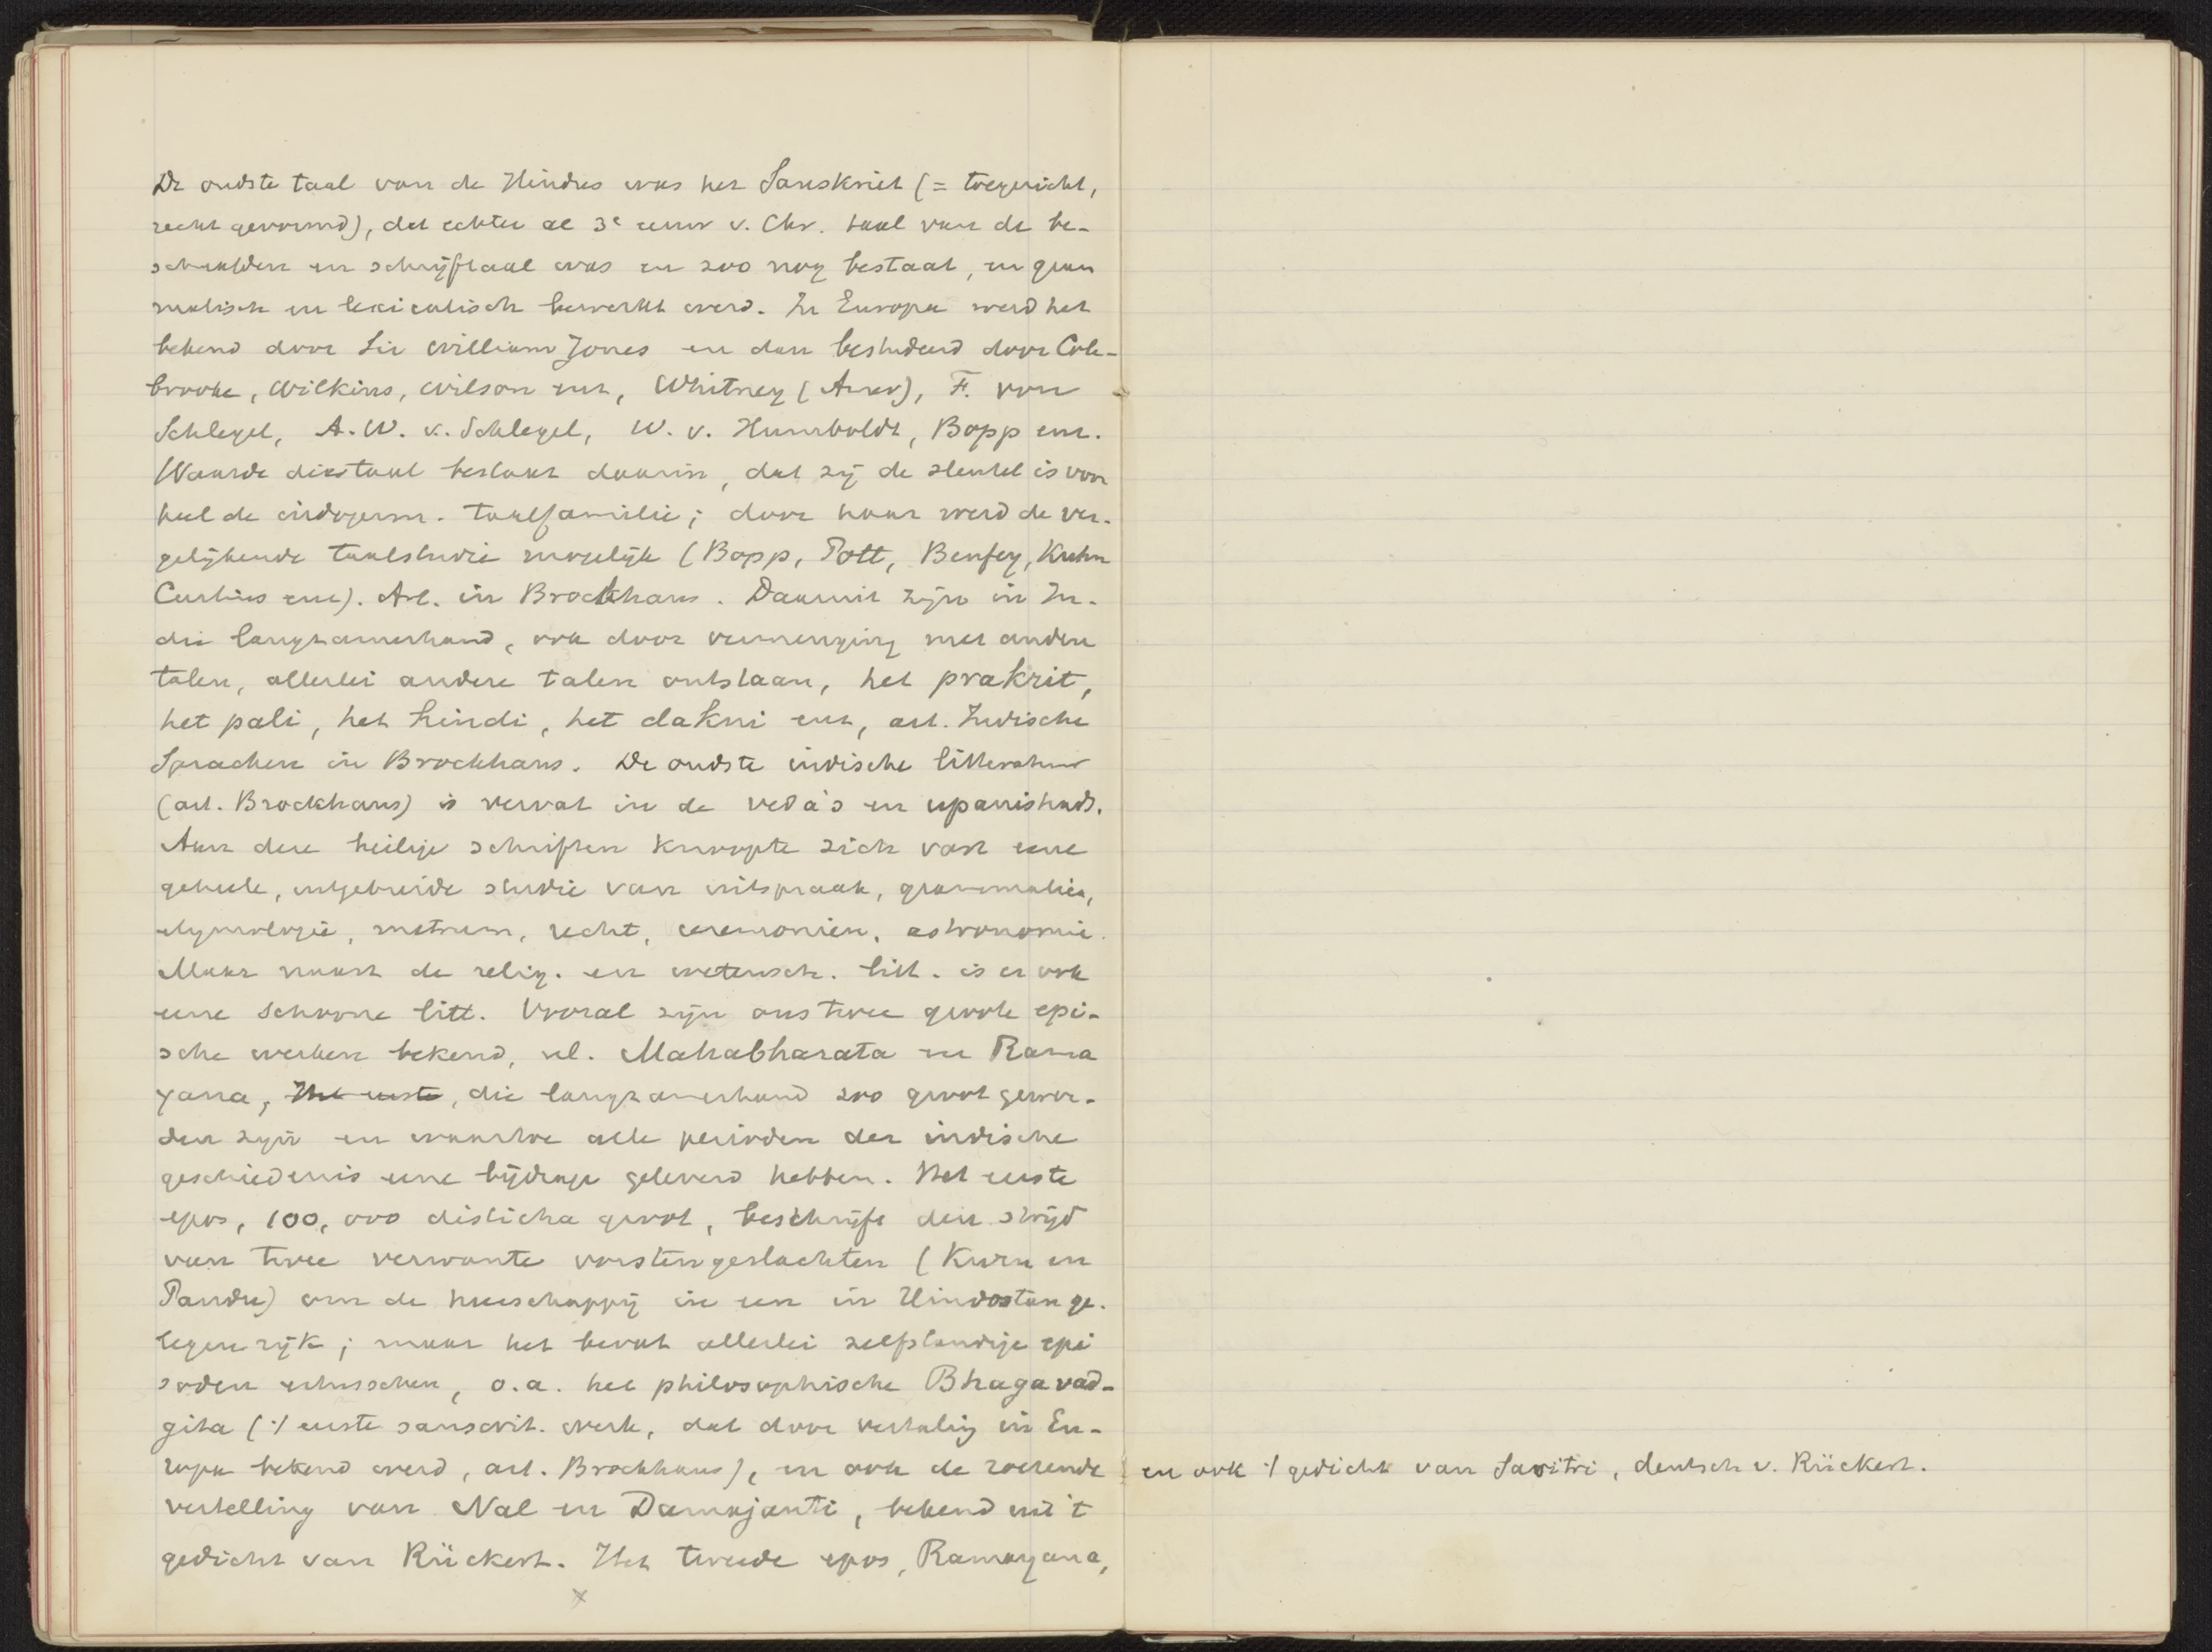 De oudste taal van de Hindus was het Sanskriet (= toegericht,
recht gevormd), dat echter al 3e eeuw v. Chr. taal van de be-
schaafden en schrijftaal was en zoo nog bestaat, en gram
matisch en lexicalisch bewerkt werd. In Europa werd het
bekend door Sir William Jones en dan bestudeerd door Cole-
brooke, Wilkins, Wilson enz, Whitney (Amer), F. von
Schlegel, A. W. v. Schlegel, W. v. Humboldt, Bopp enz.
Waarde dier taal bestaat daarin, dat zij de sleutel is voor
heel de indogerm. taalfamilie; door haar werd de ver-
gelijkende taalstudie mogelijk (Bopp, Pott, Benfey, Kuhn
Curtius enz). Art. in Brockhaus. Daaruit zijn in In-
die langzamerhand, ook door vermenging met andere
talen, allerlei andere talen ontstaan, het prakrit,
het pali, het hindi, het dakni enz, art. Indische
Sprachen in Brockhaus. De oudste indische litteratuur
(art. Brockhaus) is vervat in de veda's en upanishads.
Aan deze heilige schriften knoopte zich vast eene
geheele, uitgebreide studie van uitspraak, grammatica,
etymologie, metrum, recht, ceremoniën, astronomie.
Maar naast de relig. en wetensch. litt. is er ook
eene schoone litt. Vooral zijn ons twee groote epi-
sche werken bekend, nl. Mahabharata en Rama
yana, Het eerste, die langzamerhand zoo groot gewor-
den zijn en waartoe alle perioden der indische
geschiedenis eene bijdrage geleverd hebben. Het eerste
epos, 100,000 disticha groot, beschrijft den strijd
van twee verwante vorstengeslachten (Kuru en
Pandu) om de heerschappij in een in Hindostan ge-
legen rijk; maar het bevat allerlei zelfstandige epi
soden ertusschen, o.a. het philosophische Bhagavad-
gita ('t eerste sanscrit. werk, dat door vertaling in Eu-
ropa bekend werd, art. Brockhaus), en ook de roerende
vertelling van Nal en Damajanti, bekend uit 't
gedicht van Rückert. Het tweede epos, Ramayana,
x
en ook 't gedicht van Savitri, deutsch v. Rückert.